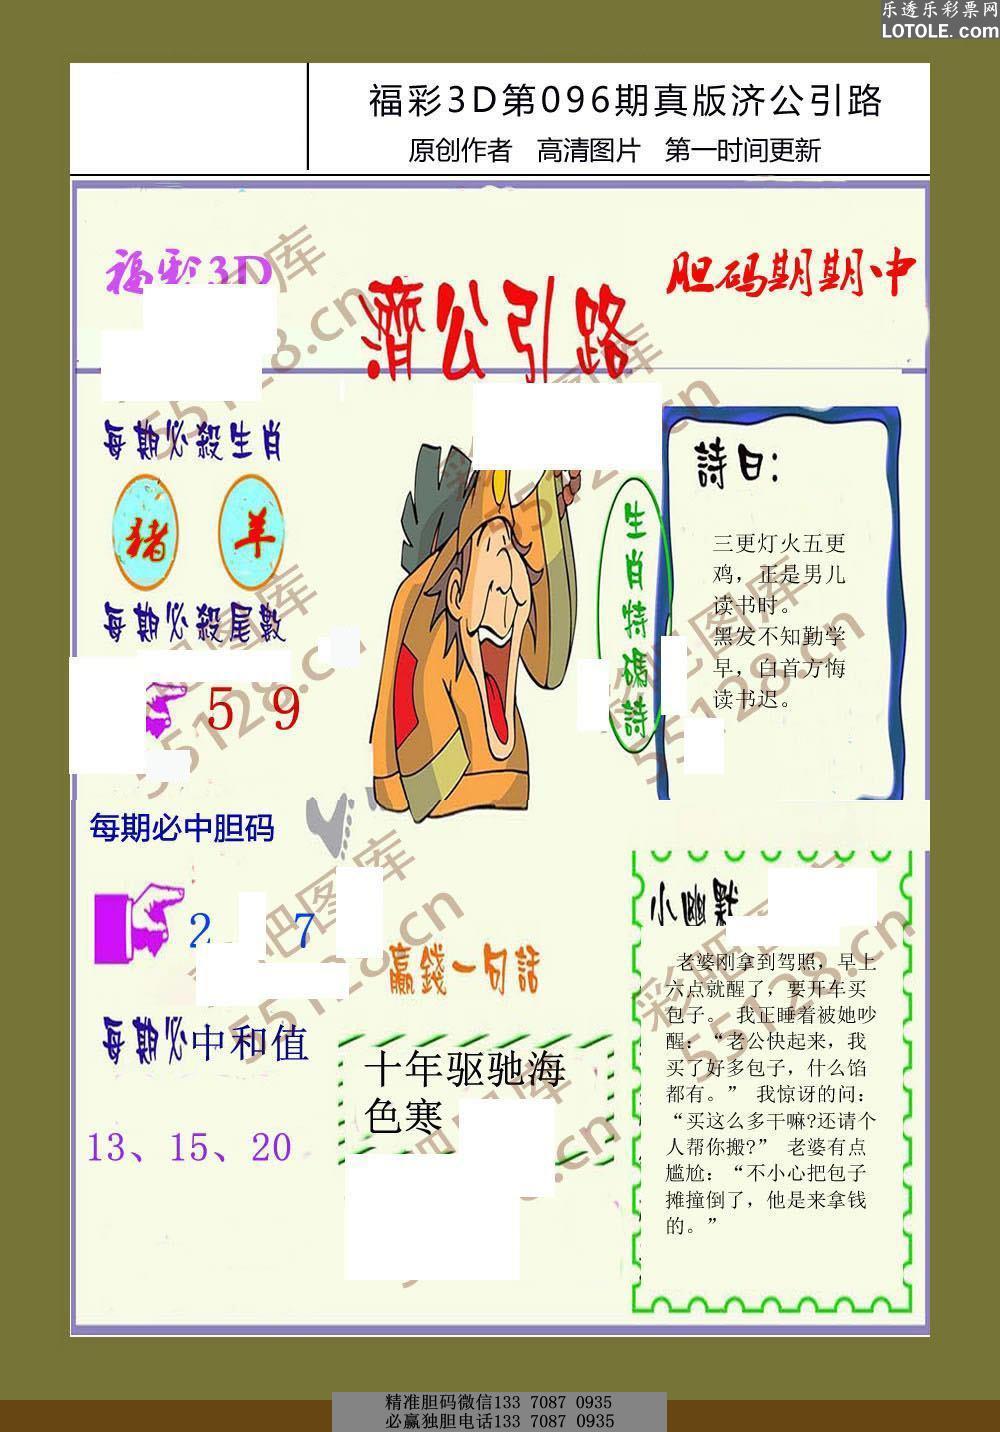 乐透乐彩票网
LOTOLE.com
福彩3D第096期真版济公引路
原创作者 高清图片 第一时间更新
福彩3D
濟公引路
胆码期期中
每期必殺生肖
猪 羊
每期必殺尾數
5 9
每期必中胆码
2 7
每期必中和值
13、15、20
生肖特碼詩
詩曰：
三更灯火五更
鸡，正是男儿
读书时。
黑发不知勤学
早，白首方悔
读书迟。
贏錢一句話
十年驱驰海
色寒
小幽默
老婆刚拿到驾照，早上
六点就醒了，要开车买
包子。 我正睡着被她吵
醒：“老公快起来，我
买了好多包子，什么馅
都有。” 我惊讶的问：
“买这么多干嘛?还请个
人帮你搬?” 老婆有点
尴尬：“不小心把包子
摊撞倒了，他是来拿钱
的。”
彩吧图库
55128.cn
精准胆码微信133 7087 0935
必赢独胆电话133 7087 0935